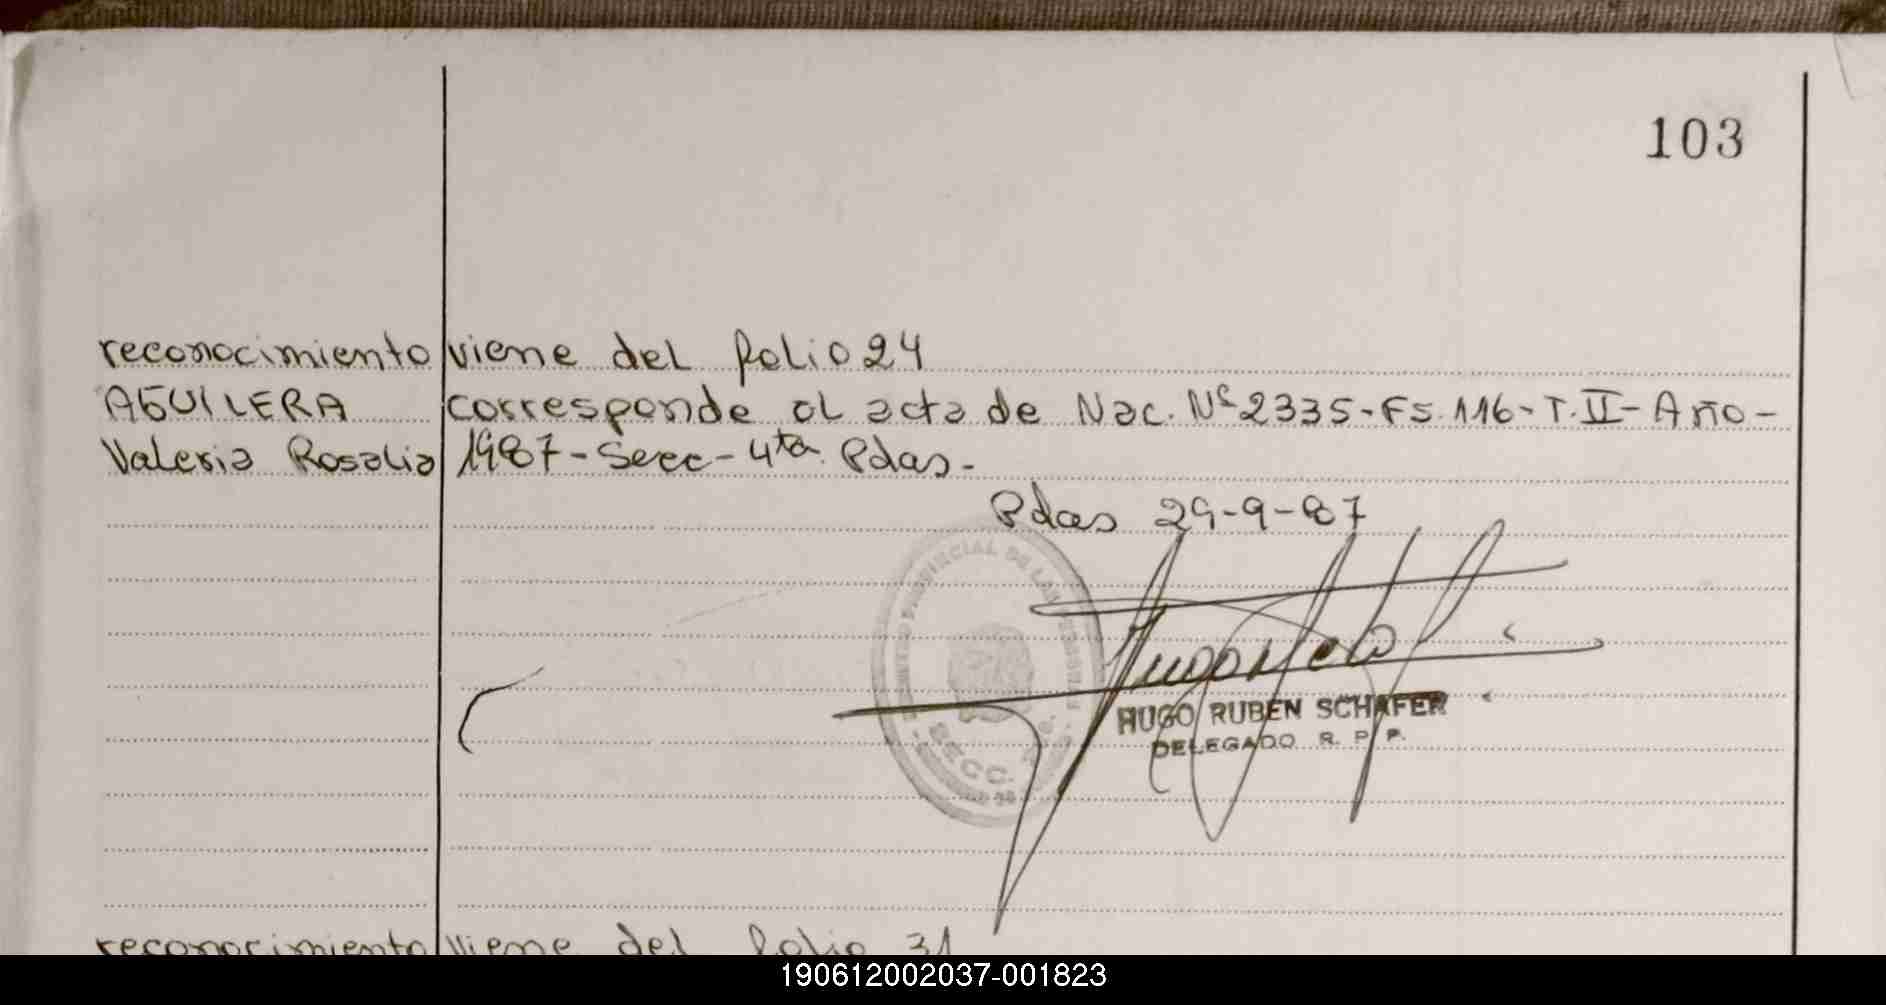 103
reconocimiento viene del folio 24
AGUILERA corresponde al acta de Nac. Nº 2335-Fs. 116-T. II-Año-
Valeria Rosalia 1987-Secc-4ta. Pdas-
Pdas 29-9-87
HUGO RUBEN SCHAFER
DELEGADO R. P. P.
reconocimiento viene del folio 31
190612002037-001823